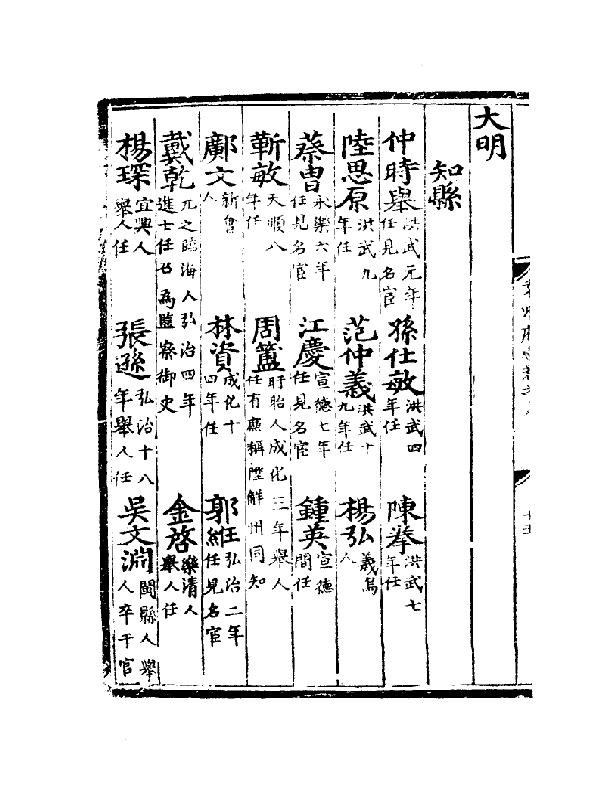 大明
知縣
仲時舉 洪武元年任見名宦 孫仕敏 洪武四年任 陳拳 洪武七年任
陸思原 洪武九年任 范仲義 洪武十九年任 楊弘 義烏人
蔡曺 永樂六年任見名宦 江慶 宣德七年任見名宦 鍾英 宣德間任
靳敏 天順八年任 周簠 盱眙人成化三年舉人任有廉稱陞解州同知
鄺文 新會人 林資 成化十四年任 郭紝 弘治二年任見名宦
戴乾 元之臨海人弘治四年進士任召為監察御史 金啓 樂清人舉人任
楊琛 宜興人舉人任 張遜 弘治十八年舉人任 吳文淵 閩縣人舉人卒于官